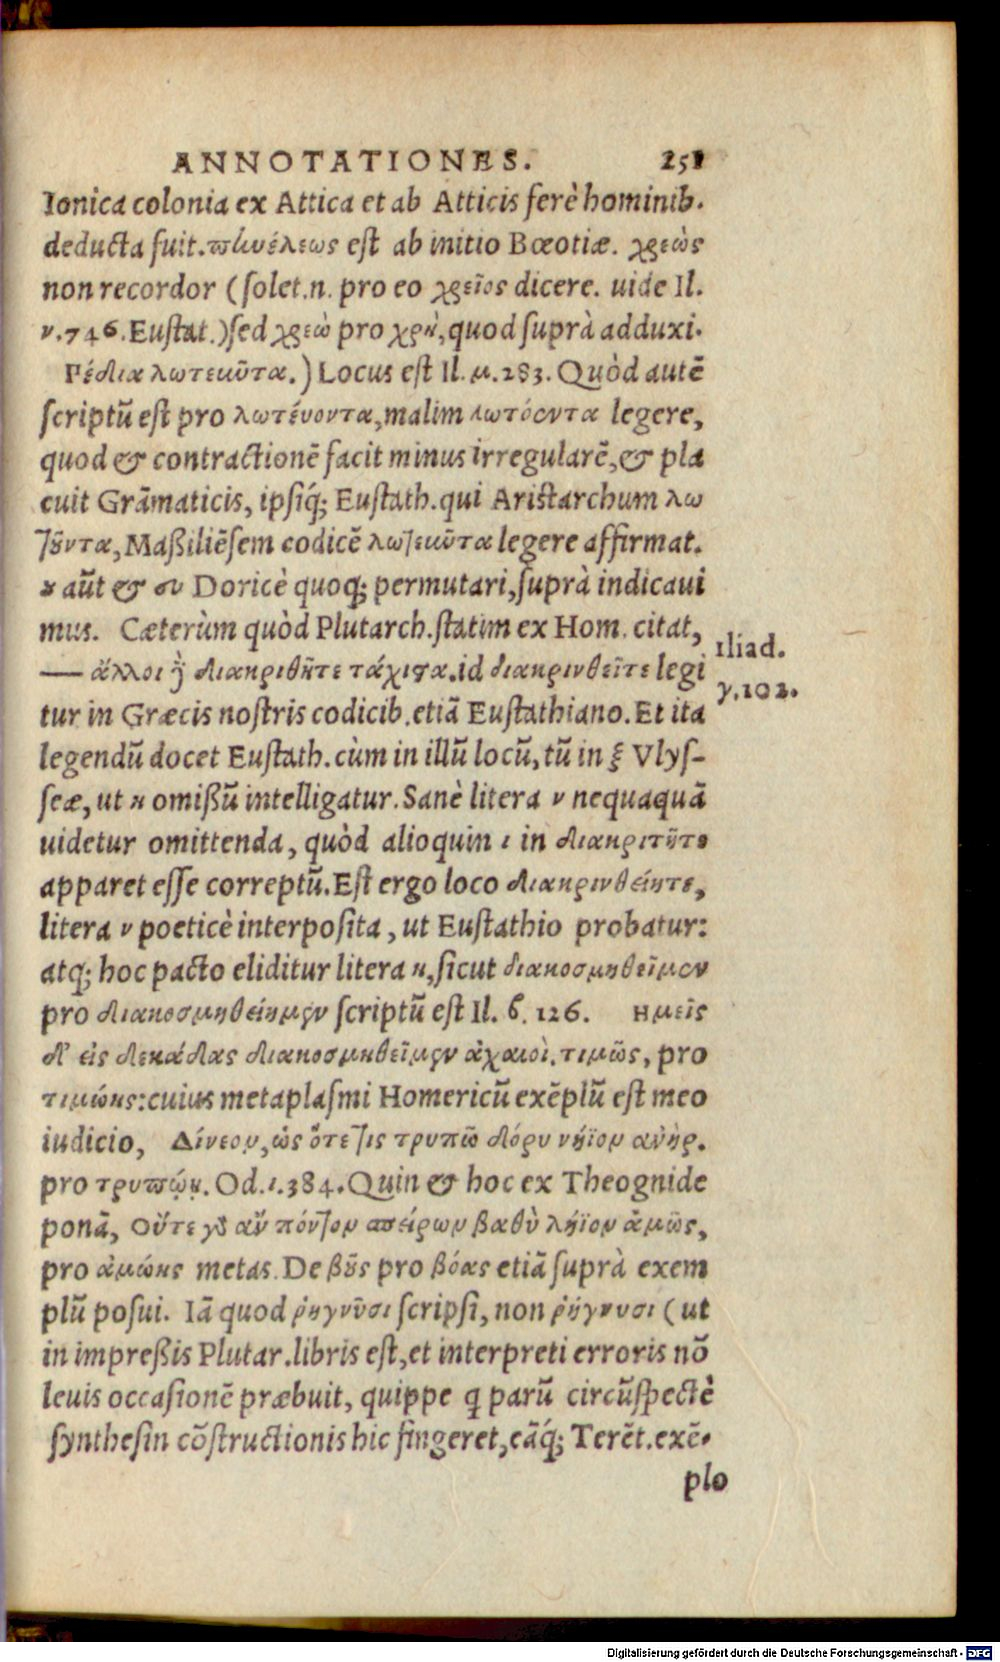 ANNOTATIONES. 251
Ionica colonia ex Attica et ab Atticis ferè hominib.
deducta fuit. est ab initio Bœotiæ. χρεὼς
non recordor (solet.n. pro eo χρεῖος dicere. uide Il.
ν.746. Eustat.) sed χρεὼ pro χρὴ, quod suprà adduxi.
Γέδια λωτεῦτα.) Locus est Il. μ.283. Quòd autē
scriptū est pro λωτέυοντα, malim λωτόοντα legere,
quod & contractionē facit minus irregularē, & pla
cuit Grāmaticis, ipsiq́; Eustath. qui Aristarchum λω
τοῦντα, Maßiliēsem codicē λωτεῦτα legere affirmat.
ȣ aūt & ευ Doricè quoq; permutari, suprà indicaui
mus. Cæterùm quòd Plutarch. statim ex Hom. citat,
— ἄλλοι δὲ διακριθῆτε τάχιστα. id διακρινθεῖτε legi
tur in Græcis nostris codicib. etiā Eustathiano. Et ita
legendū docet Eustath. cùm in illū locū, tū in ξ Vlys-
seæ, ut η omißū intelligatur. Sanè litera ν nequaquā
uidetur omittenda, quòd alioquin ι in διακριτῆτε
apparet esse correptū. Est ergo loco διακρινθείητε,
litera ν poeticè interposita, ut Eustathio probatur:
atq; hoc pacto eliditur litera η, sicut διακοσμηθεῖμεν
pro διακοσμηθείημεν scriptū est Il. β. 126. Ημεῖς
δ' εἰς δεκάδας διακοσμηθεῖμεν ἀχαιοὶ. τιμῶς, pro
τιμώης: cuius metaplasmi Homericū exēplū est meo
iudicio, Δίνεον, ὡς ὅτε τις τρυπῶ δόρυ νήϊον ἀνὴρ.
pro τρυπῴη. Od. ι.384. Quin & hoc ex Theognide
ponā, Οὔτε γὰ ἂν πόντον σπείρων βαθὺ λήϊον ἀμῶς,
pro ἀμώης metas. De βοῦς pro βόας etiā suprà exem
plū posui. Iā quod ῥηγνῦσι scripsi, non ῥήγνυσι (ut
in impreßis Plutar. libris est, et interpreti erroris nō
leuis occasionē præbuit, quippe q parū circūspectè
synthesin cōstructionis hic fingeret, eāq́; Terēt. exē-
plo
Iliad.
γ.102.
Digitalisierung gefördert durch die Deutsche Forschungsgemeinschaft - DFG